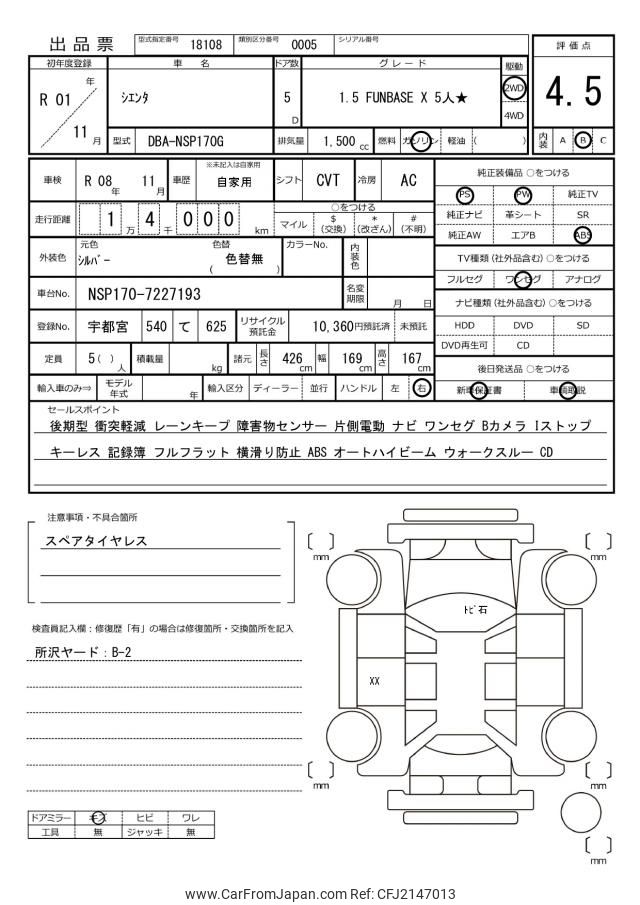 出品票
型式指定番号 18108 類別区分番号 0005 シリアル番号
評価点
初年度登録 車名 ドア数 グレード 駆動
R 01 年 11 月
シエンタ
5 D
1.5 FUNBASE X 5人★
2WD
4WD
4.5
型式 DBA-NSP170G 排気量 1,500 cc 燃料 ガソリン 軽油 ( )
内装 A B C
車検 R 08 年 11 月 車歴 ※未記入は自家用 自家用 シフト CVT 冷房 AC
純正装備品 ○をつける
PS PW 純正TV
純正ナビ 革シート SR
純正AW エアB ABS
走行距離 1 万 4 千 0 0 0 km
○をつける
マイル $(交換) *(改ざん) #(不明)
外装色 元色 シルバー 色替 ( 色替無 ) カラーNo. 内装色
TV種類(社外品含む) ○をつける
フルセグ ワンセグ アナログ
車台No. NSP170-7227193 名変期限 月 日
ナビ種類(社外品含む) ○をつける
HDD DVD SD
DVD再生可 CD
登録No. 宇都宮 540 て 625 リサイクル預託金 10,360円預託済 未預託
定員 5( ) 人 積載量 kg 諸元 長さ 426 cm 幅 169 cm 高さ 167 cm
後日発送品 ○をつける
新車保証書 車輌取説
輸入車のみ⇒ モデル年式 年 輸入区分 ディーラー 並行 ハンドル 左 右
セールスポイント
後期型 衝突軽減 レーンキープ 障害物センサー 片側電動 ナビ ワンセグ Bカメラ Iストップ
キーレス 記録簿 フルフラット 横滑り防止 ABS オートハイビーム ウォークスルー CD
注意事項・不具合箇所
スペアタイヤレス
検査員記入欄：修復歴「有」の場合は修復箇所・交換箇所を記入
所沢ヤード：B-2
ドアミラー キズ ヒビ ワレ
工具 無 ジャッキ 無
[ ] mm
[ ] mm
トビ石
XX
[ ] mm
[ ] mm
[ ] mm
www.CarFromJapan.com Ref: CFJ2147013